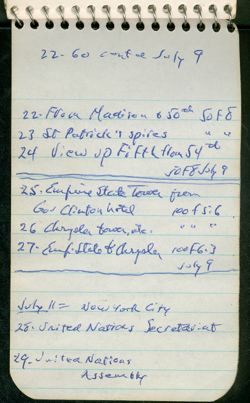 22-60 July 9
22-From Madison & 50th 50 f 8
23 St Patrick's spires " "
24 View up Fifth from 54th
50 f 8 July 9
25-Empire State Tower from
Gov Clinton hotel 100 f 5.6
26 Chrysler tower, etc. " " "
27-Emp. State to Chrysler 100 f 6.3
July 9
July 11= New York City
28-United Nations Secretariat
29-United Nations
Assembly